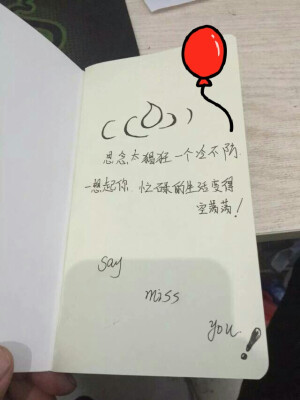 思念太猖狂一个冷不防
一想起你 忙碌的生活变得
空荡荡!
say
miss
you!